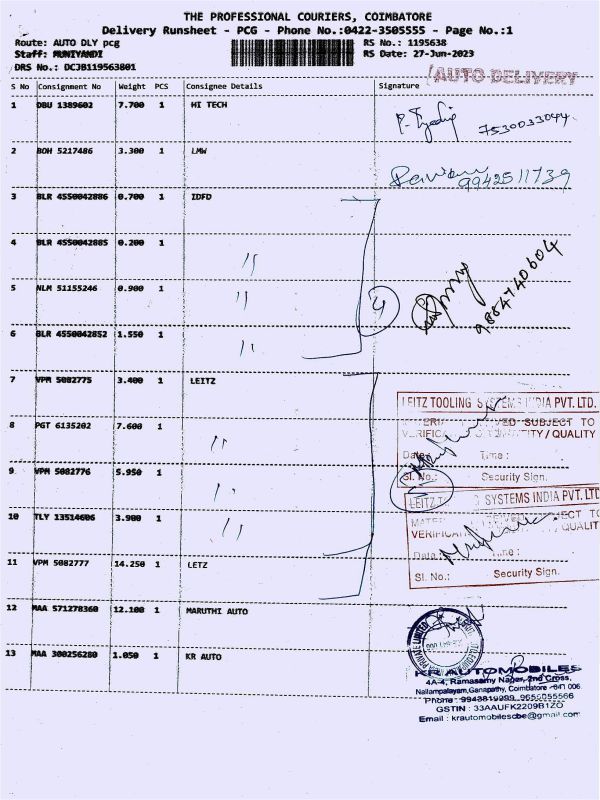 THE PROFESSIONAL COURIERS, COIMBATORE
Delivery Runsheet - PCG - Phone No.:0422-3505555 - Page No.:1
Route: AUTO DLY pcg RS No.: 1195638
Staff: MUNIYANDI RS Date: 27-Jun-2023
DRS No.: DCJB119563801
(AUTO DELIVERY
S No Consignment No Weight PCS Consignee Details Signature
1 DBU 1389602 7.700 1 HI TECH
7530033044
2 BOH 5217486 3.300 1 LMW
9942511739
3 BLR 4550042886 0.700 1 IDFD
4 BLR 4550042885 0.200 1 "
5 NLM 51155246 0.900 1 "
4
9884740604
6 BLR 4550042852 1.550 1 "
7 VPM 5082775 3.400 1 LEITZ
8 PGT 6135202 7.600 1 "
9 VPM 5082776 5.950 1 "
10 TLY 13514606 3.900 1 "
11 VPM 5082777 14.250 1 LETZ
LEITZ TOOLING SYSTEMS INDIA PVT. LTD.
SUBJECT TO
QUANTITY / QUALITY
Date: Time:
Sl. No.: Security Sign.
5
LEITZ SYSTEMS INDIA PVT. LTD
Date: Time:
Sl. No.: Security Sign.
12 MAA 571278360 12.100 1 MARUTHI AUTO
PRIVATE LIMITED
13 MAA 300256280 1.050 1 KR AUTO
KR AUTOMOBILES
4A-4, Ramasamy Nagar, 2nd Cross,
Nallampalayam, Ganapathy, Coimbatore - 641 006
Phone : 9943819999, 9655055566
GSTIN : 33AAUFK2209B1ZO
Email : krautomobilescbe@gmail.com